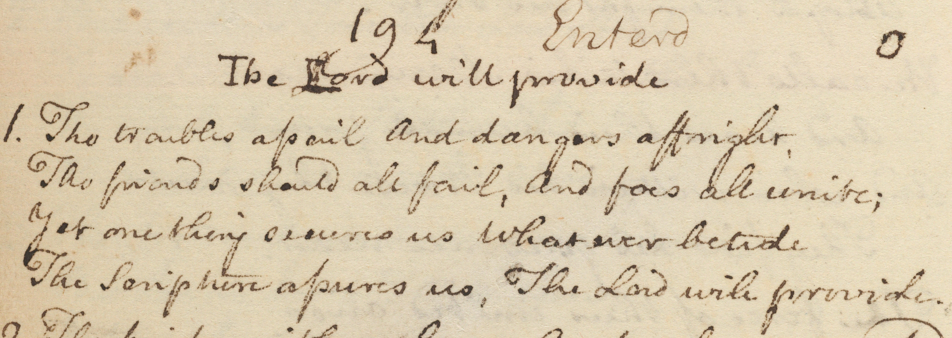 194 Enterd 0
The Lord will provide
1. Tho troubles assail And dangers affright,
Tho friends should all fail, And foes all unite;
Yet one thing secures us Whatever betide
The Scripture assures us, The Lord will provide.
2.